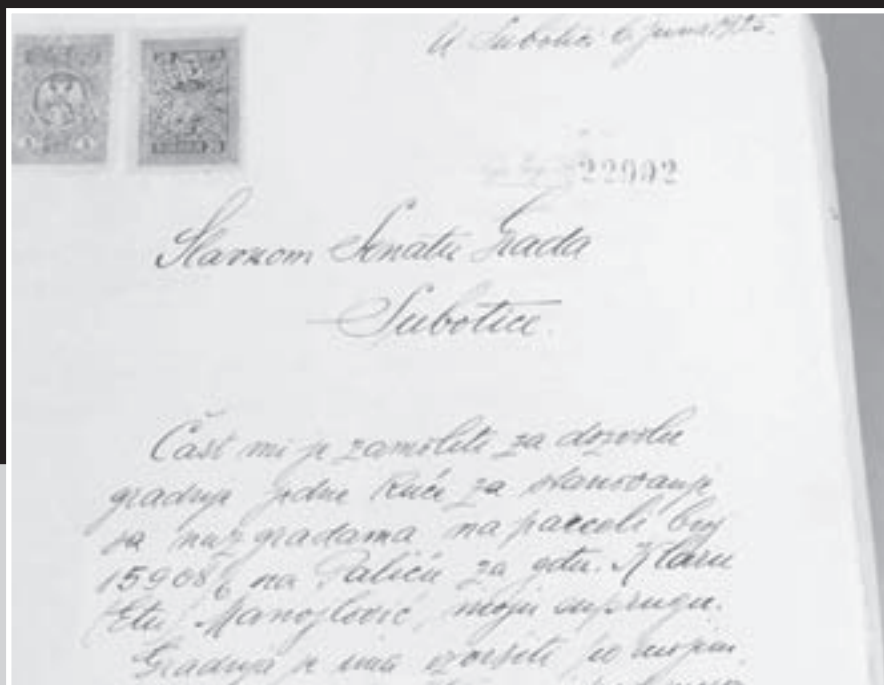 U Subotici 6. juna 1925.
22002
Slavnom Senatu Grada
Subotice.
Čast mi je zamoliti za dozvolu
gradnje jedne kuće za stanovanje
sa nuzgradama na parceli broj
15908/6 na Paliću za gđu. Klaru
Etu Manojlović, moju suprugu.
Gradnja je ima izvršiti po mojim